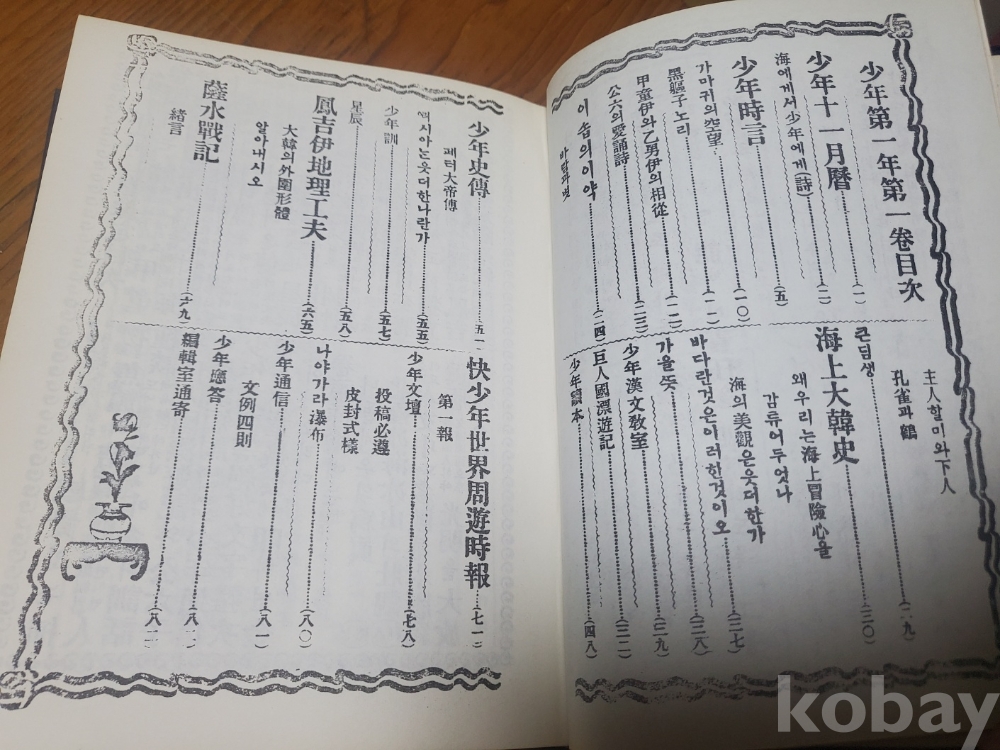 少年第一年第一卷目次
少年十一月曆 (一)
海에게서少年에게(詩) (二)
少年時言 (五)
가마귀의空望 (一〇)
黑軀子노리 (一一)
甲童伊와乙男伊의相從 (一二)
公六의愛誦詩 (二三)
이솝의이약 (二四)
바람과볏
主人할미와下人
孔雀과鶴 (二九)
큰딥생
海上大韓史 (三〇)
왜우리는海上冒險心을
감튜어두엇나
海의美觀은웃더한가 (三七)
바다란것은이러한것이오 (三八)
가을뜻 (三九)
少年漢文敎室
巨人國漂遊記
少年讀本 (四八)
少年史傳 五一
페터大帝傳
少年訓 (五七)
星辰 (五八)
鳳吉伊地理工夫 (六五)
大韓의外圍形體
알아내시오
薩水戰記 (六九)
緖言
快少年世界周遊時報 七一
第一報
少年文壇 (七八)
投稿必遵
皮封式樣
나야가라瀑布 (八〇)
少年通信 (八一)
文例四則
少年應答
編輯室通寄
kobay